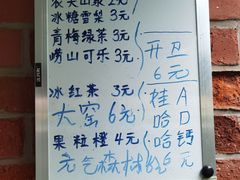 农夫山泉 2元
冰糖雪梨 3元
青梅绿茶 3元
崂山可乐 3元
冰红茶 3元
大窑 6元
果粒橙 4元
元气森林 6元
6元
桂A
哈D
哈钙